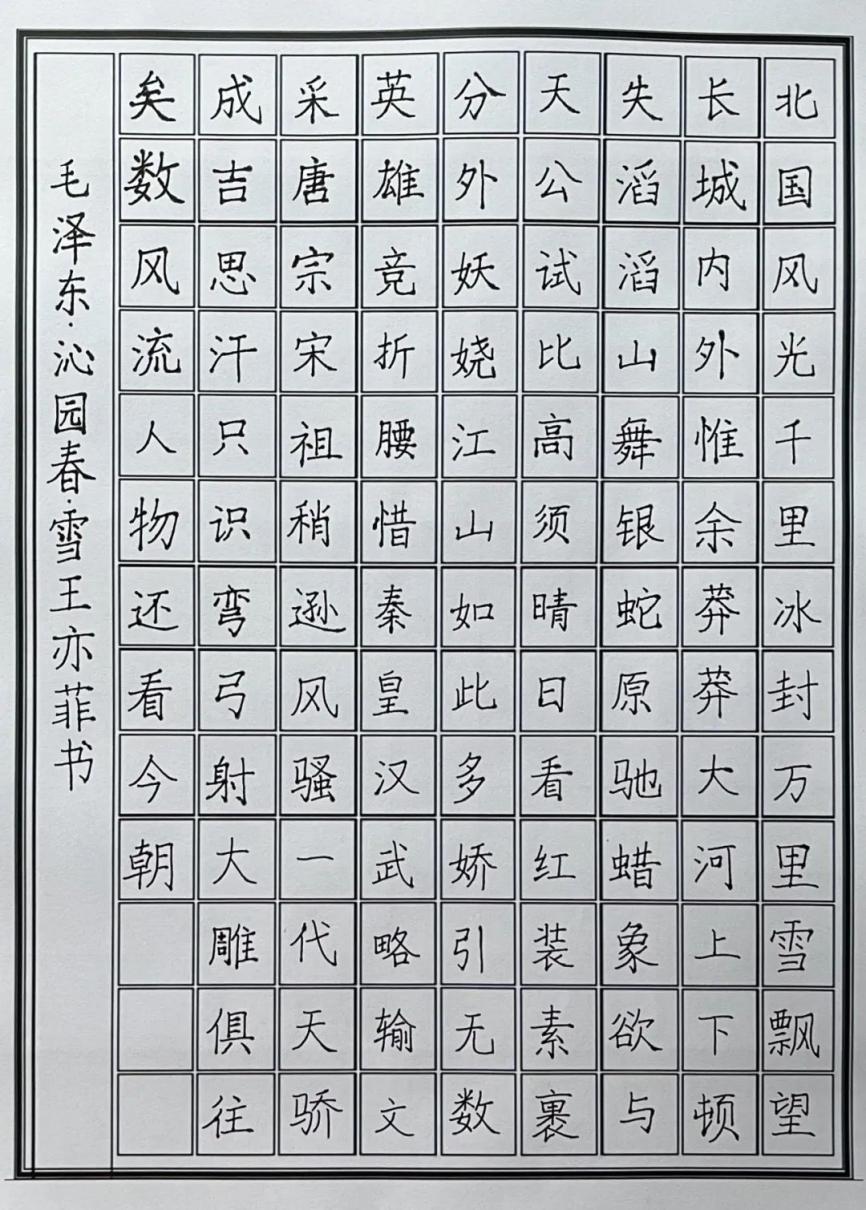 北国风光千里冰封万里雪飘望
长城内外惟余莽莽大河上下顿
失滔滔山舞银蛇原驰蜡象欲与
天公试比高须晴日看红装素裹
分外妖娆江山如此多娇引无数
英雄竞折腰惜秦皇汉武略输文
采唐宗宋祖稍逊风骚一代天骄
成吉思汗只识弯弓射大雕俱往
矣数风流人物还看今朝
毛泽东·沁园春·雪王亦菲书